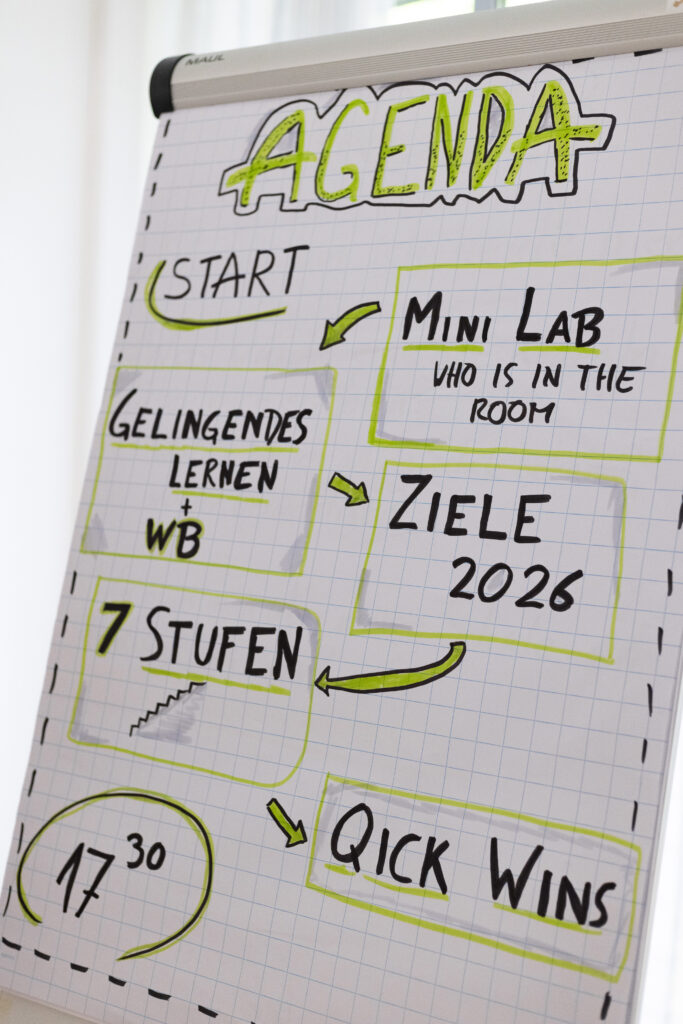 MAUL
AGENDA
START
MINI LAB
WHO IS IN THE
ROOM
GELINGENDES
LERNEN
+
WB
ZIELE
2026
7 STUFEN
QICK WINS
17 30